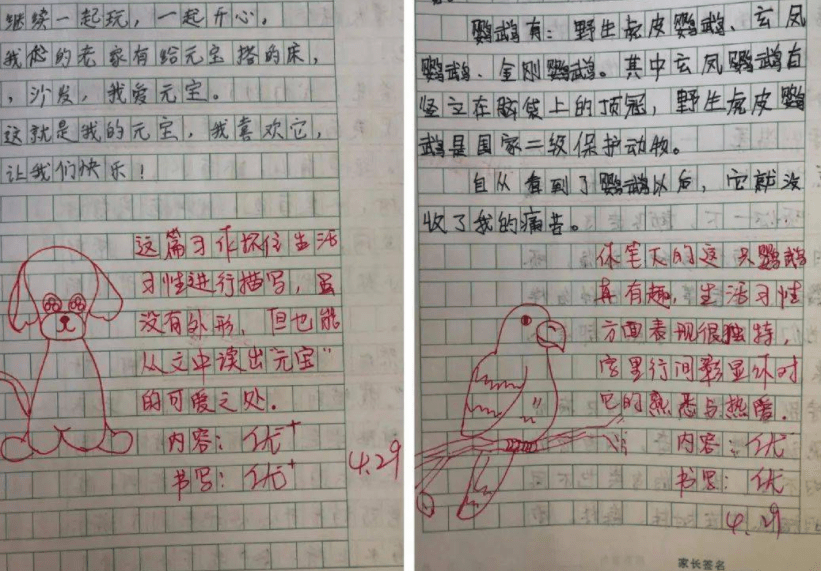 继续一起玩，一起开心，
我爸的老家有给元宝搭的床，
，沙发，我爱元宝。
这就是我的元宝，我喜欢它，
让我们快乐！
这篇习作抓住生活
习性进行描写，虽
没有外形，但也能
从文中读出"元宝"
的可爱之处。
内容：优+
书写：优+
4.29
鹦鹉有：野生虎皮鹦鹉、玄凤
鹦鹉、金刚鹦鹉。其中玄凤鹦鹉有
竖立在脑袋上的顶冠，野生虎皮鹦
鹉是国家二级保护动物。
自从看到了鹦鹉以后，它就没
收了我的痛苦。
你笔下的这只鹦鹉
真有趣，生活习性
方面表现很独特，
字里行间彰显你对
它的熟悉与热爱。
内容：优
书写：优
4.29
家长签名